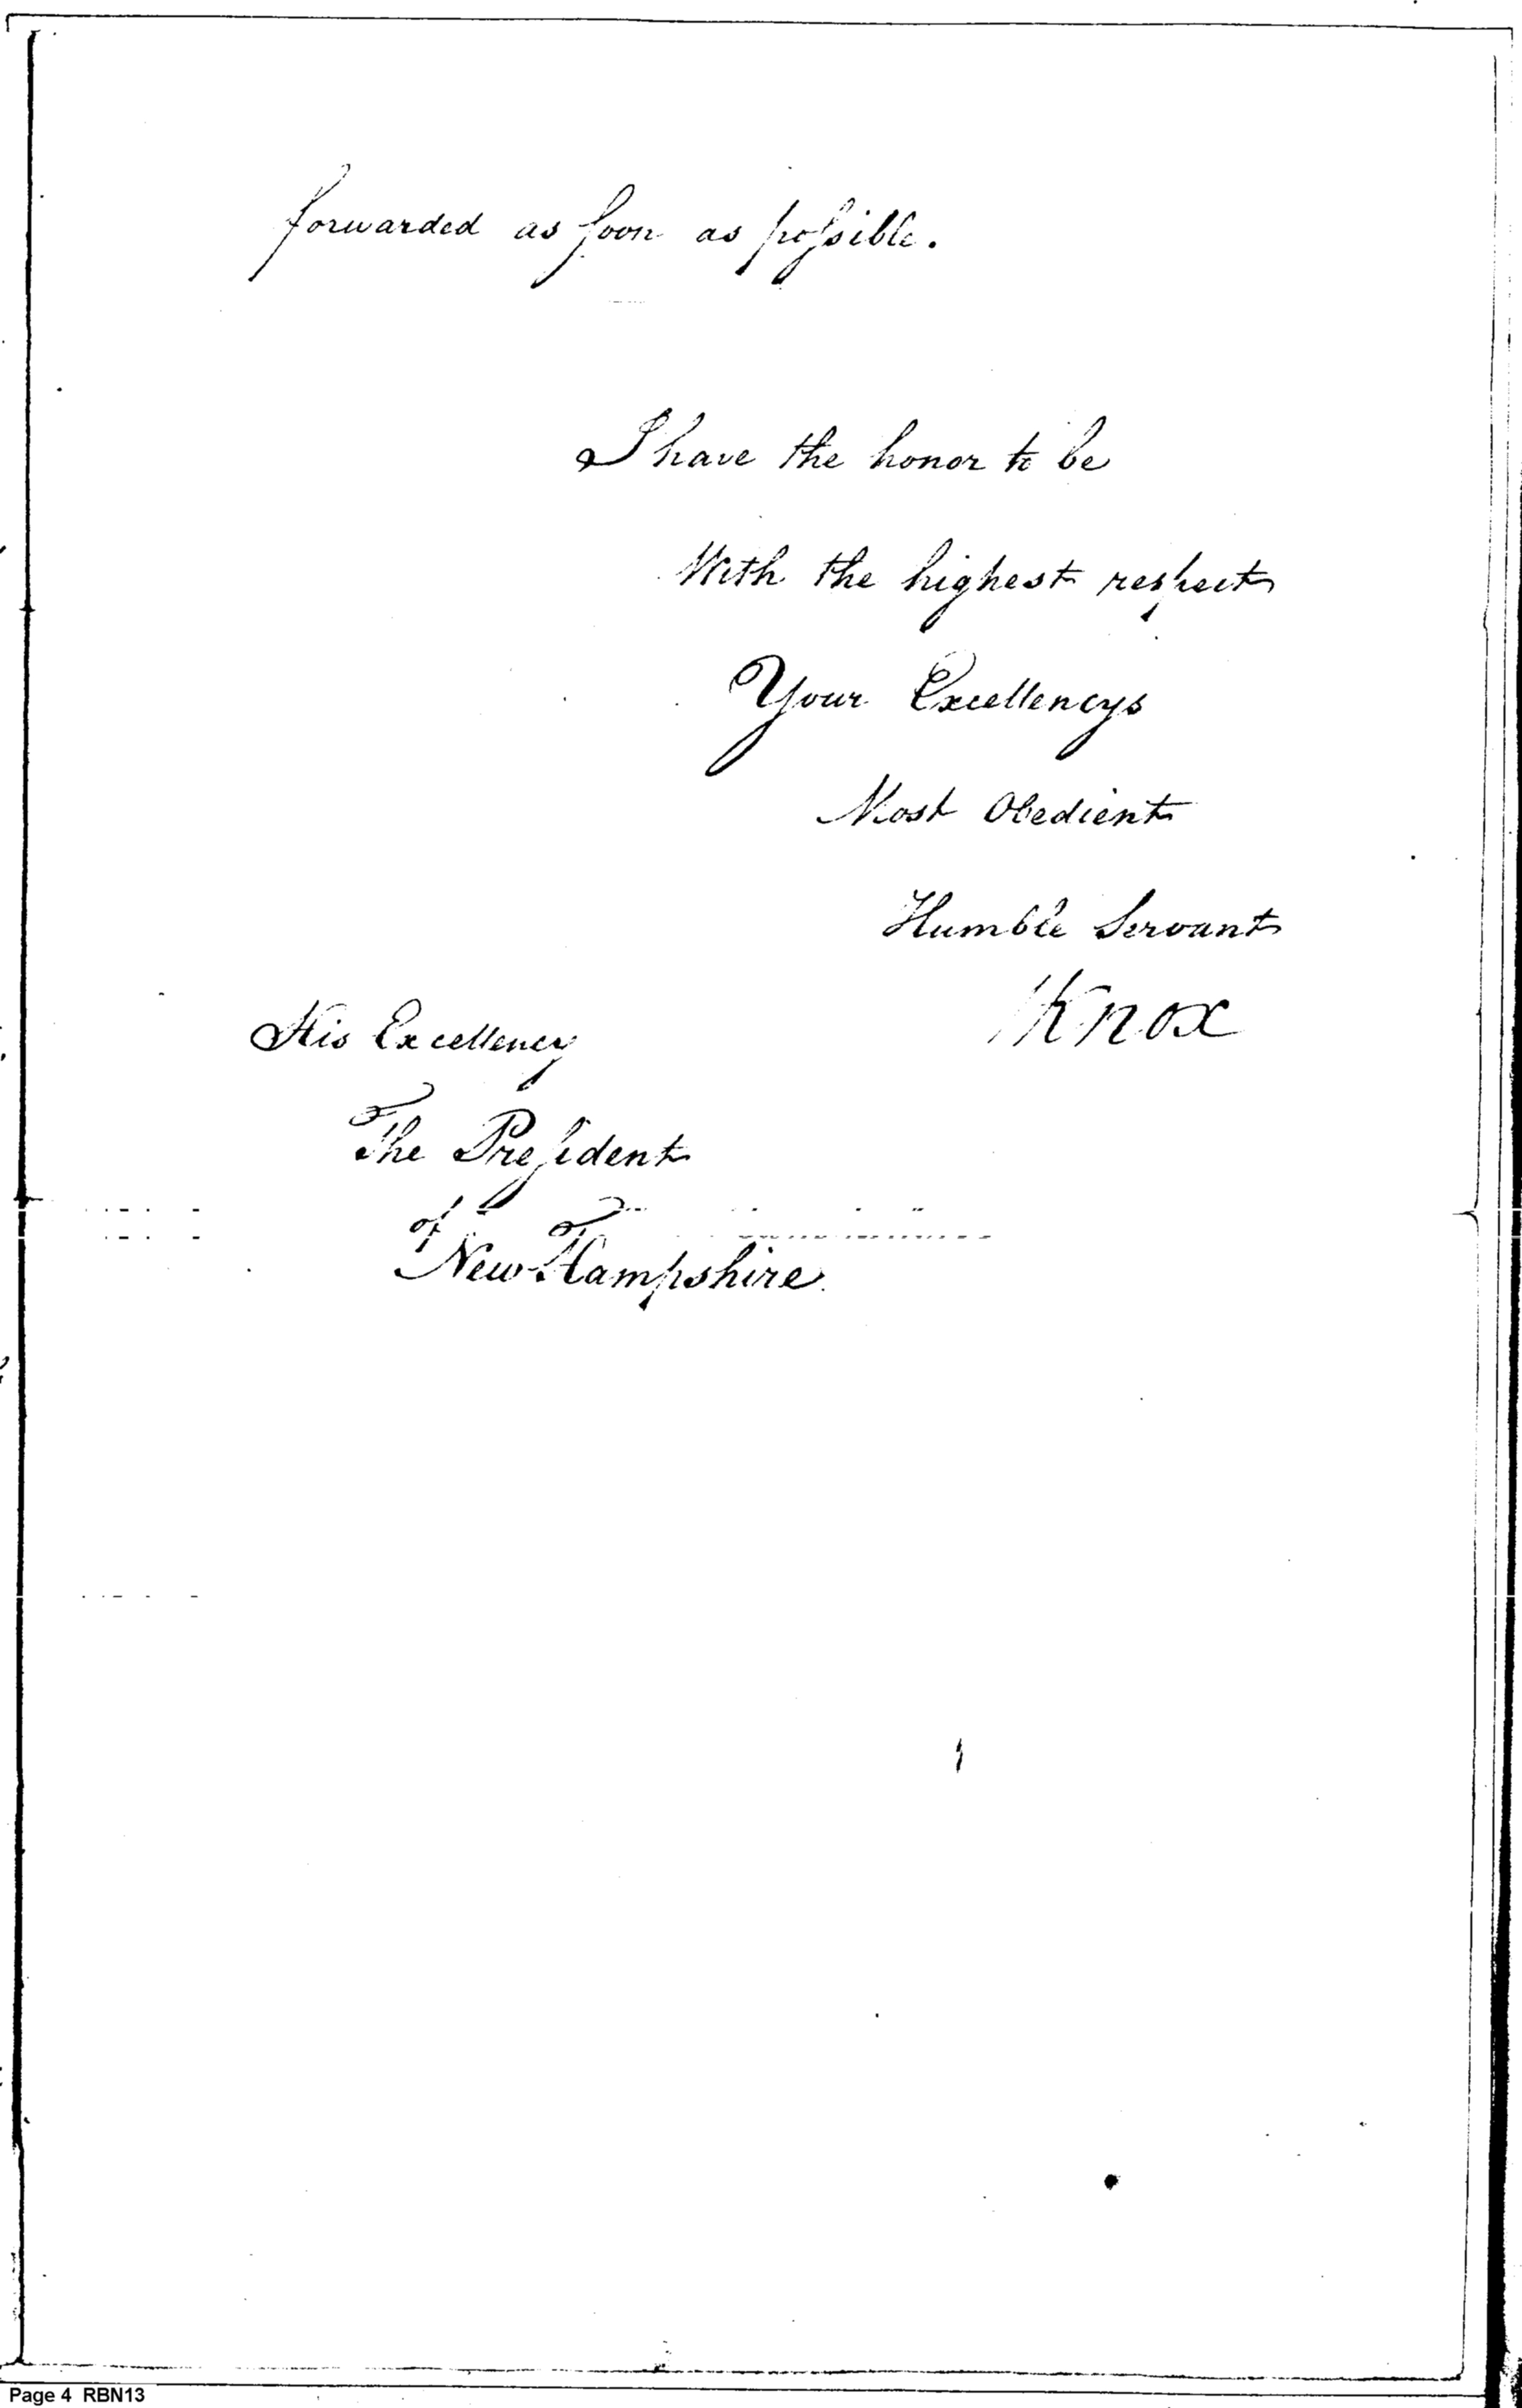 forwarded as soon as possible.
I have the honor to be
With the highest respect
Your Excellencys
Most Obedient
Humble Servant
HKnox
His Excellency
The President
of
New-Hampshire
Page 4 RBN13